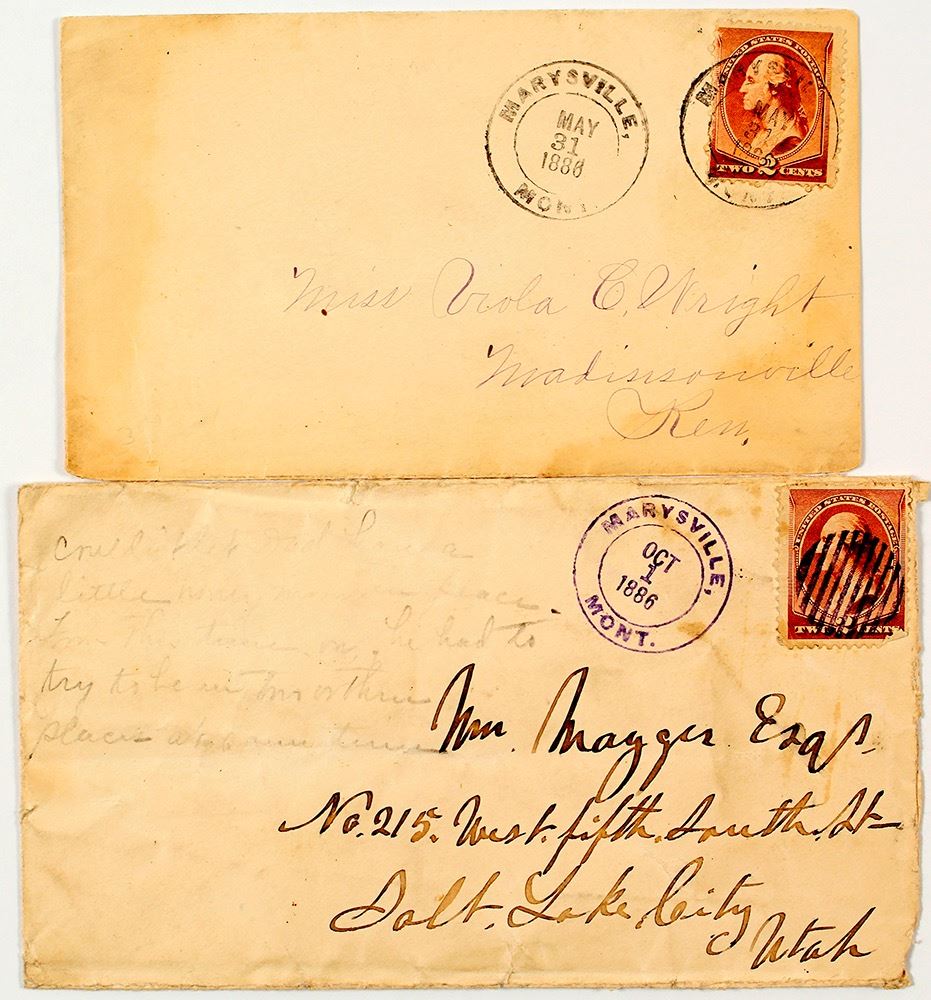 MARYSVILLE,
MAY
31
1886
MONT.
MAY
31
UNITED STATES POSTAGE
TWO 2 CENTS
Miss Viola C. Wright
Madinsonville
Ken.
3
MARYSVILLE,
OCT
1
1886
MONT.
UNITED STATES POSTAGE
TWO 2 CENTS
a
little
he had to
try to be in
places
Wm. Mayger Esqr.
No. 215. West. fifth. South. St
Salt. Lake. City
Utah